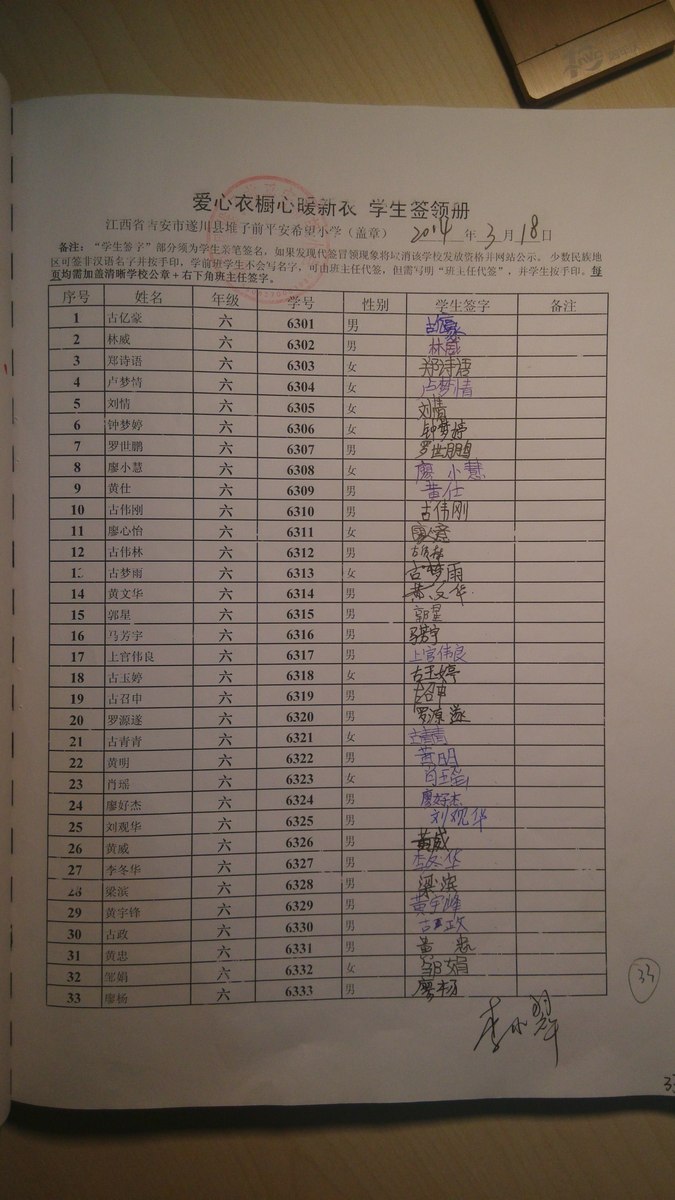 爱心衣橱心暖新衣 学生签领册
江西省吉安市遂川县堆子前平安希望小学（盖章） 2014 年 3 月 18 日
备注：“学生签字”部分须为学生亲笔签名，如果发现代签冒领现象将取消该学校发放资格并网站公示。 少数民族地
区可签非汉语名字并按手印，学前班学生不会写名字，可由班主任代签，但需写明“班主任代签”，并学生按手印。每
页均需加盖清晰学校公章+右下角班主任签字。
序号 姓名 年级 学号 性别 学生签字 备注
1 古亿豪 六 6301 男 古亿豪
2 林威 六 6302 男 林威
3 郑诗语 六 6303 女 郑诗语
4 卢梦情 六 6304 女 卢梦情
5 刘情 六 6305 女 刘情
6 钟梦婷 六 6306 女 钟梦婷
7 罗世鹏 六 6307 男 罗世鹏
8 廖小慧 六 6308 女 廖小慧
9 黄仕 六 6309 男 黄仕
10 古伟刚 六 6310 男 古伟刚
11 廖心怡 六 6311 女
12 古伟林 六 6312 男 古伟林
13 古梦雨 六 6313 女 古梦雨
14 黄文华 六 6314 男 黄文华
15 郭星 六 6315 男 郭星
16 马芳宇 六 6316 男 马芳宇
17 上官伟良 六 6317 男 上官伟良
18 古玉婷 六 6318 女 古玉婷
19 古召申 六 6319 男 古召申
20 罗源遂 六 6320 男 罗源遂
21 古青青 六 6321 女 古青青
22 黄明 六 6322 男 黄明
23 肖瑶 六 6323 女 肖瑶
24 廖好杰 六 6324 男 廖好杰
25 刘观华 六 6325 男 刘观华
26 黄威 六 6326 男 黄威
27 李冬华 六 6327 男 李冬华
28 梁滨 六 6328 男 梁滨
29 黄宇锋 六 6329 男 黄宇峰
30 古政 六 6330 男 古政
31 黄忠 六 6331 男 黄忠
32 邹娟 六 6332 女 邹娟
33 廖杨 六 6333 男 廖杨
33
李小翠
33